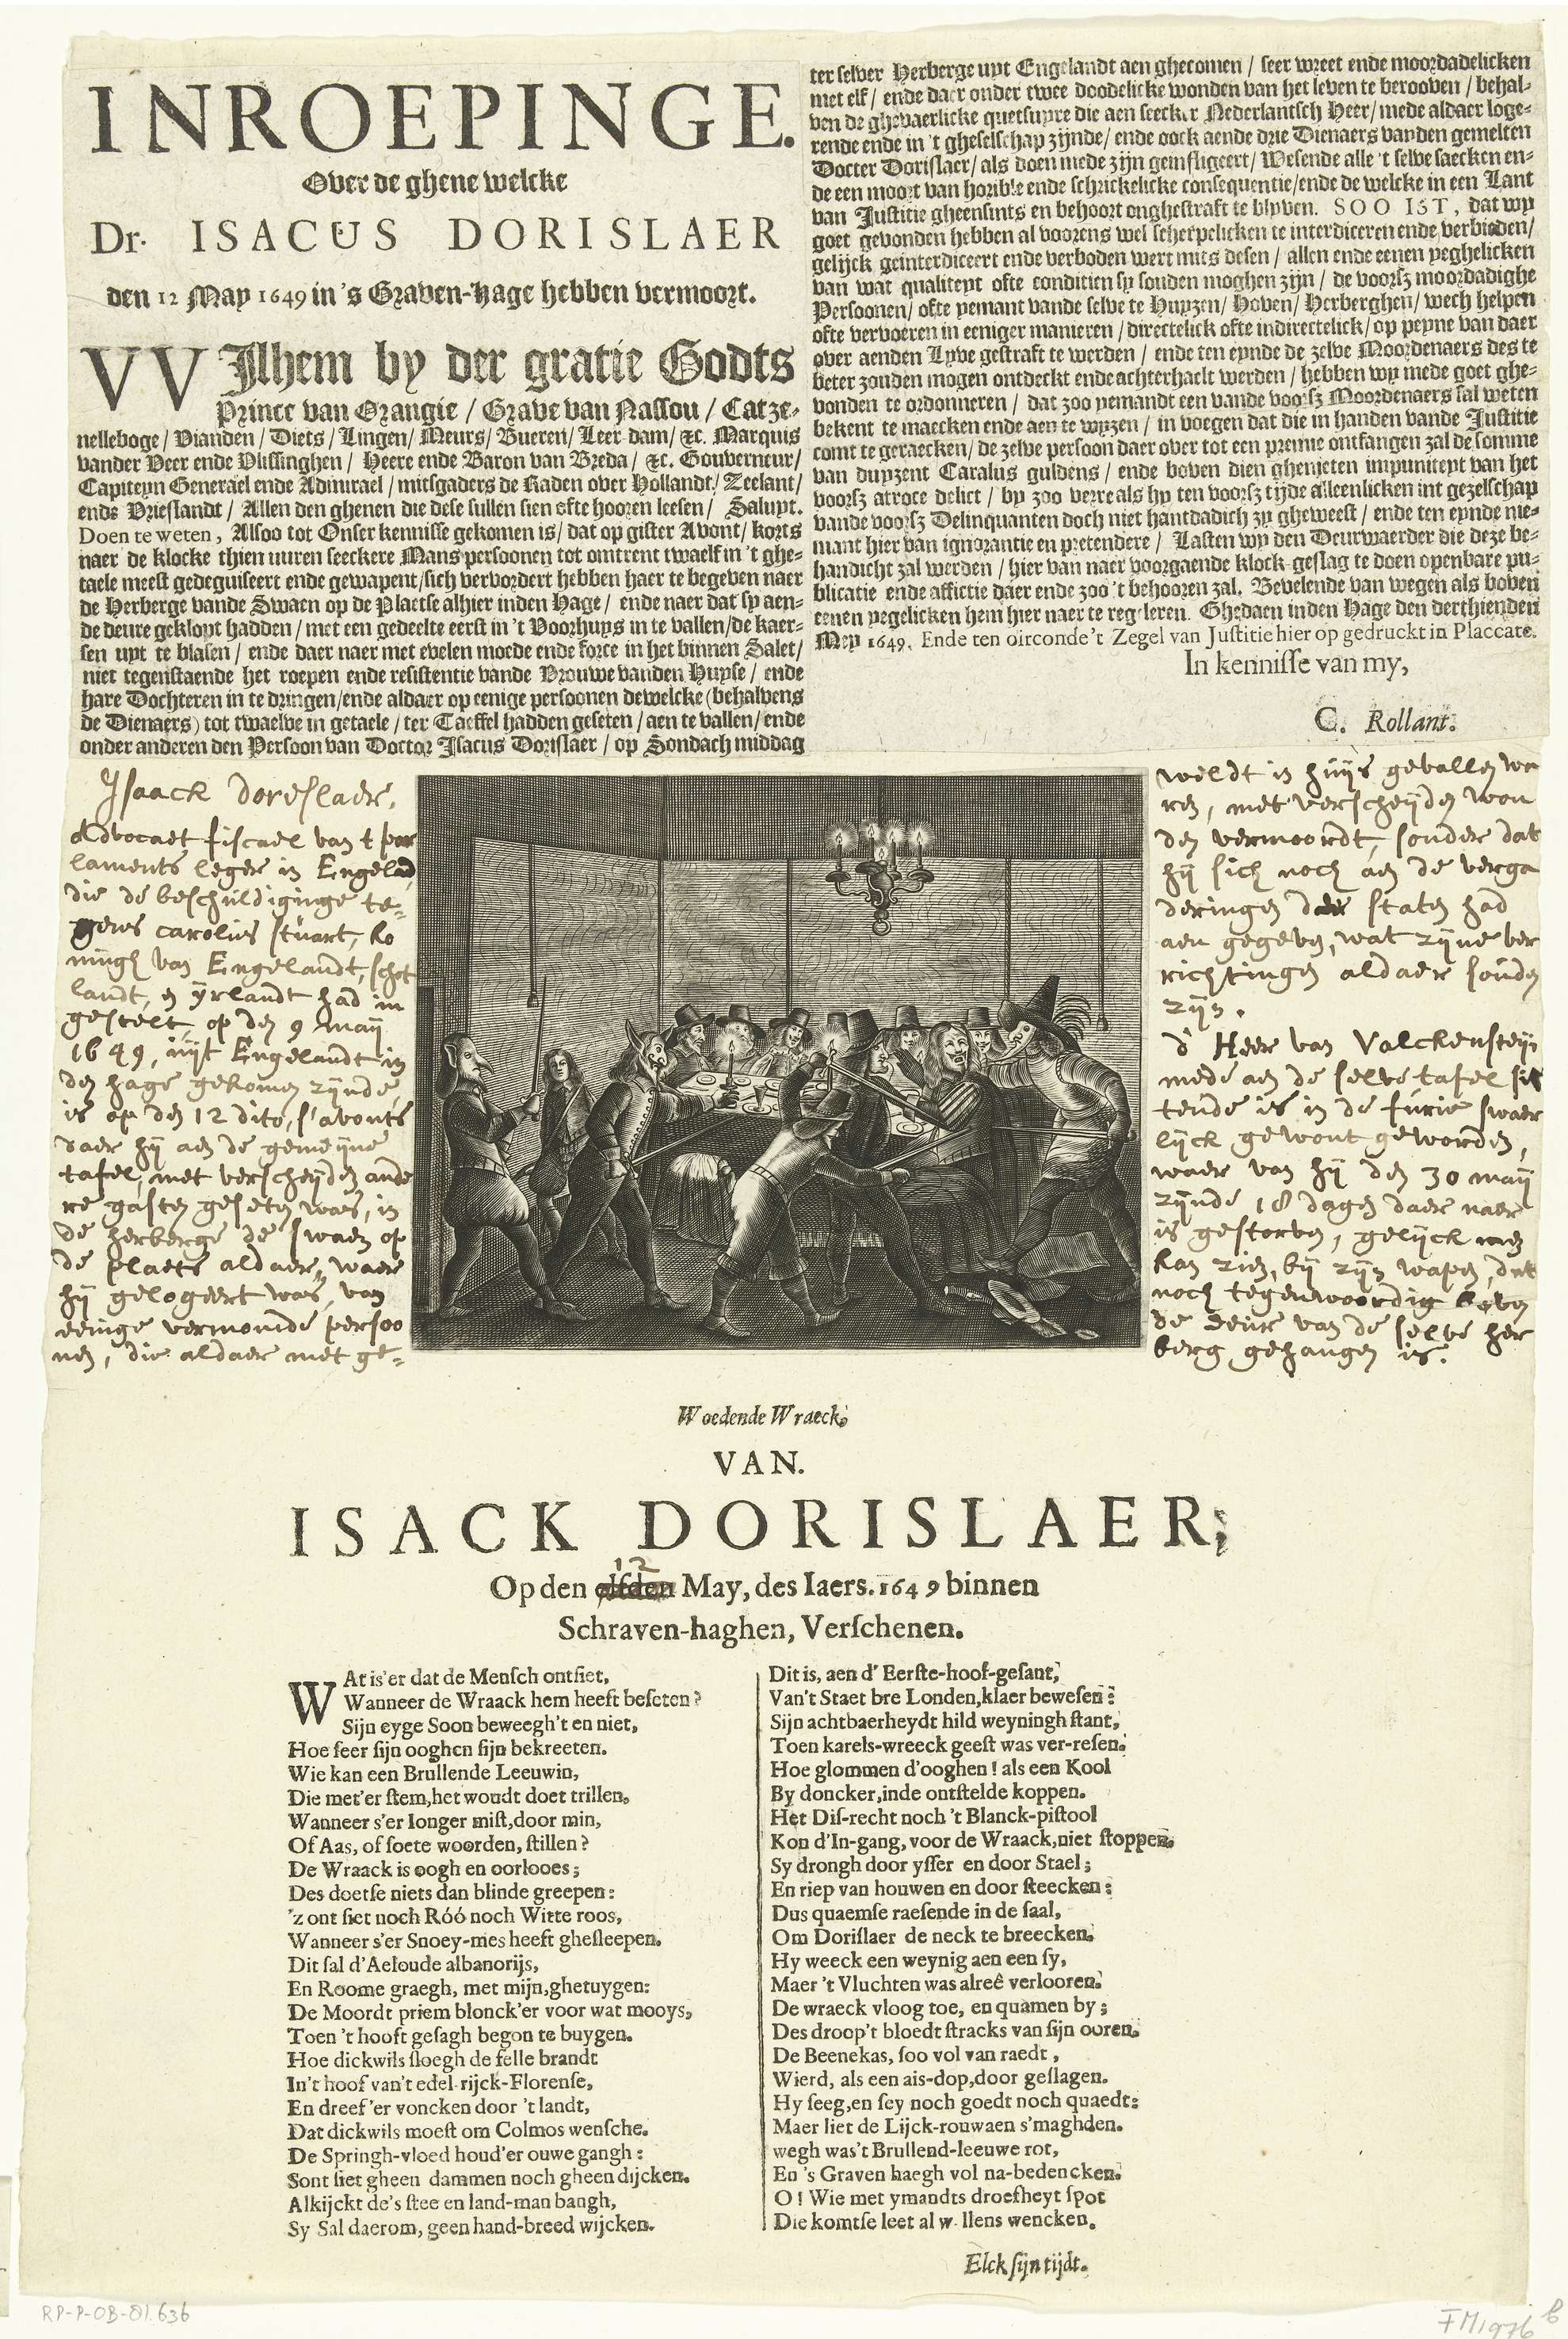 INROEPINGE.
Over de ghene welcke
Dr. ISACUS DORISLAER
den 12 May 1649 in 's Graven-Hage hebben vermoort.
VVJlhem by der gratie Godts
Prince van Orangie / Grave van Nassou / Catze-
nelleboge / Vianden / Diets / Lingen / Meurs / Bueren / Leer-dam / &c. Marquis
vander Veer ende Vlissinghen / Heere ende Baron van Breda / &c. Gouverneur /
Capiteyn Generael ende Admirael / mitsgaders de Raden over Hollandt / Zeelant /
ende Vrieslandt / Allen den ghenen die dese sullen sien ofte hooren leesen / Saluyt.
Doen te weten, Alsoo tot Onser kennisse gekomen is / dat op gister Avont / korts
naer de klocke thien uuren seeckere Mans persoonen tot omtrent twaelf in 't ghe-
taele meest gedeguiseert ende gewapent / sich vervordert hebben haer te begeven naer
de Herberge vande Swaen op de Plaetse alhier inden Hage / ende naer dat sy aen-
de deure geklopt hadden / met een gedeelte eerst in 't Voorhuys in te vallen / de kaer-
sen uyt te blasen / ende daer naer met evelen moede ende force in het binnen Salet /
niet tegenstaende het roepen ende resistentie vande Vrouwe vanden Huyse / ende
hare Dochteren in te dringen / ende aldaer op eenige persoonen dewelcke (behalvens
de Dienaers) tot twaelve in getaele / ter Taeffel hadden geseten / aen te vallen / ende
onder anderen den Persoon van Doctor Isacus Dorislaer / op Sondach middag
ter selver Herberge uyt Engelandt aen ghecomen / seer wreet ende moordadelicken
met elf / ende daer onder twee doodelicke wonden van het leven te berooven / behal-
ven de ghevaerlicke quetsuyre die aen seecker Nederlantsch Heer / mede aldaer loge-
rende ende in 't gheselschap zijnde / ende oock aende drie Dienaers vanden gemelten
Docter Dorislaer / als doen mede zijn geinfligeert / Wesende alle 't selve saecken en-
de een moort van horible ende schrickelicke consequentie / ende de welcke in een Lant
van Justitie gheensints en behoort onghestraft te blyven. SOO IST, dat wy
goet gevonden hebben al voorens wel scherpelicken te interdiceren ende verbieden /
gelijck geinterdiceert ende verboden wert mits desen / allen ende eenen yeghelicken
van wat qualiteyt ofte conditien sy souden moghen zijn / de voorsz moordadighe
Persoonen / ofte yemant vande selve te Huyzen / Hoven / Herberghen / wech helpen
ofte vervoeren in eeniger manieren / directelick ofte indirectelick / op peyne van daer
over aenden Lyve gestraft te werden / ende ten eynde de zelve Moordenaers des te
beter zouden mogen ontdeckt ende achterhaelt werden / hebben wy mede goet ghe-
vonden te ordonneren / dat zoo yemandt een vande voorsz Moordenaers sal weten
bekent te maecken ende aen te wyzen / in voegen dat die in handen vande Justitie
comt te geraecken / de zelve persoon daer over tot een premie ontfangen zal de somme
van duyzent Caralus guldens / ende boven dien ghenieten impuniteyt van het
voorsz atroce delict / by zoo verre als hy ten voorsz tijde alleenlicken int gezelschap
vande voorsz Delinquanten doch niet hantdadich zy gheweest / ende ten eynde nie-
mant hier van ignorantie en pretendere / Lasten wy den Deurwaerder die deze be-
handicht zal werden / hier van naer voorgaende klock-geslag te doen openbare pu-
blicatie ende affictie daer ende zoo 't behooren zal. Bevelende van wegen als boven
eenen yegelicken hem hier naer te reguleren. Ghedaen inden Hage den derthienden
Mey 1649. Ende ten oirconde 't Zegel van Justitie hier op gedruckt in Placcate.
In kennisse van my,
C. Rollant.
Isaack doreslaer,
Advocaet fiscael van t par
laments leger in Engeland
die de beschuldiginge te-
gens carolus stuart, ko
ningh van Engelandt, schot
landt, en yrlandt had in
gestelt, op den 9 maij
1649, uijt Engelandt in
den hage gekomen zijnde,
is op den 12 dito, s'avonts
daer hij aen de gemeijne
tafel, met verscheijden ande
re gasten geseten was, in
de herberge de swaen op
de plaets aldaer, waer
hij gelogeert was, van
eenige vermomde persoo
nen, die aldaer met ge-
weldt in huijs gevallen wa
ren, met verscheijden won
den vermoordt, sonder dat
hij sich noch aen de verga
deringen der staten had
aen gegeven, wat zijne ver
richtingen aldaer souden
zijn.
d' Heer van Valckensteijn
mede aen de selve tafel sit
tende is in de furie swaer
lijck gewont geworden,
waer van hij den 30 maij
zijnde 18 dagen daer naer
is gestorven, gelijck men
kan zien, bij zijn wapen, dat
noch tegenwoordig boven
de deur van de selve her
berg gehangen is.
Woedende Wraeck,
VAN.
ISACK DORISLAER;
12
Op den elfden May, des Iaers. 1649 binnen
Schraven-haghen, Verschenen.
WAt is'er dat de Mensch ontsiet,
Wanneer de Wraack hem heeft beseten?
Sijn eyge Soon beweegh't en niet,
Hoe seer sijn ooghen sijn bekreeten.
Wie kan een Brullende Leeuwin,
Die met'er stem, het woudt doet trillen,
Wanneer s'er longer mist, door min,
Of Aas, of soete woorden, stillen?
De Wraack is oogh en oorlooes;
Des doetse niets dan blinde greepen:
'z ont siet noch Róó noch Witte roos,
Wanneer s'er Snoey-mes heeft ghesleepen.
Dit sal d'Aeloude albanorijs,
En Roome graegh, met mijn, ghetuygen:
De Moordt priem blonck'er voor wat mooys,
Toen 't hooft gesagh begon te buygen.
Hoe dickwils sloegh de felle brandt
In't hoof van't edel-rijck-Florense,
En dreef'er voncken door 't landt,
Dat dickwils moest om Colmos wensche.
De Springh-vloed houd'er ouwe gangh:
Sont siet gheen dammen noch gheen dijcken.
Alkijckt de's stee en land-man bangh,
Sy Sal daerom, geen hand-breed wijcken.
Dit is, aen d' Eerste-hoof-gesant,
Van't Staet bre Londen, klaer bewesen:
Sijn achtbaerheydt hild weyningh stant,
Toen karels-wreeck geest was ver-resen.
Hoe glommen d'ooghen! als een Kool
By doncker, inde ontstelde koppen.
Het Dis-recht noch 't Blanck-pistool
Kon d'In-gang, voor de Wraack, niet stoppen.
Sy drongh door ysser en door Stael;
En riep van houwen en door steecken:
Dus quaemse raesende in de saal,
Om Dorislaer de neck te breecken.
Hy weeck een weynig aen een sy,
Maer 't Vluchten was alreê verlooren.
De wraeck vloog toe, en quamen by;
Des droop't bloedt stracks van sijn ooren.
De Beenekas, soo vol van raedt,
Wierd, als een ais-dop, door geslagen.
Hy seeg, en sey noch goedt noch quaedt:
Maer liet de Lijck-rouwaen s'maghden.
wegh was't Brullend-leeuwe rot,
En 's Graven haegh vol na-bedencken.
O! Wie met ymandts droefheyt spot
Die komtse leet al w llens wencken.
Elck sijn tijdt.
RP-P-OB-81.636
FM 1976 b